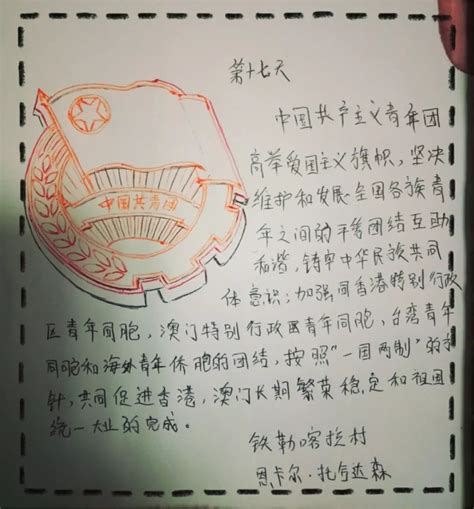 第十七天
中国共产主义青年团
高举爱国主义旗帜，坚决
维护和发展全国各族青
年之间的平等团结互助
和谐，铸牢中华民族共同
体意识；加强同香港特别行政
区青年同胞，澳门特别行政区青年同胞，台湾青年
同胞和海外青年侨胞的团结，按照“一国两制”的方
针，共同促进香港，澳门长期繁荣稳定和祖国
统一大业的完成。
中国共青团
铁勒喀拉村
恩卡尔·托合达森